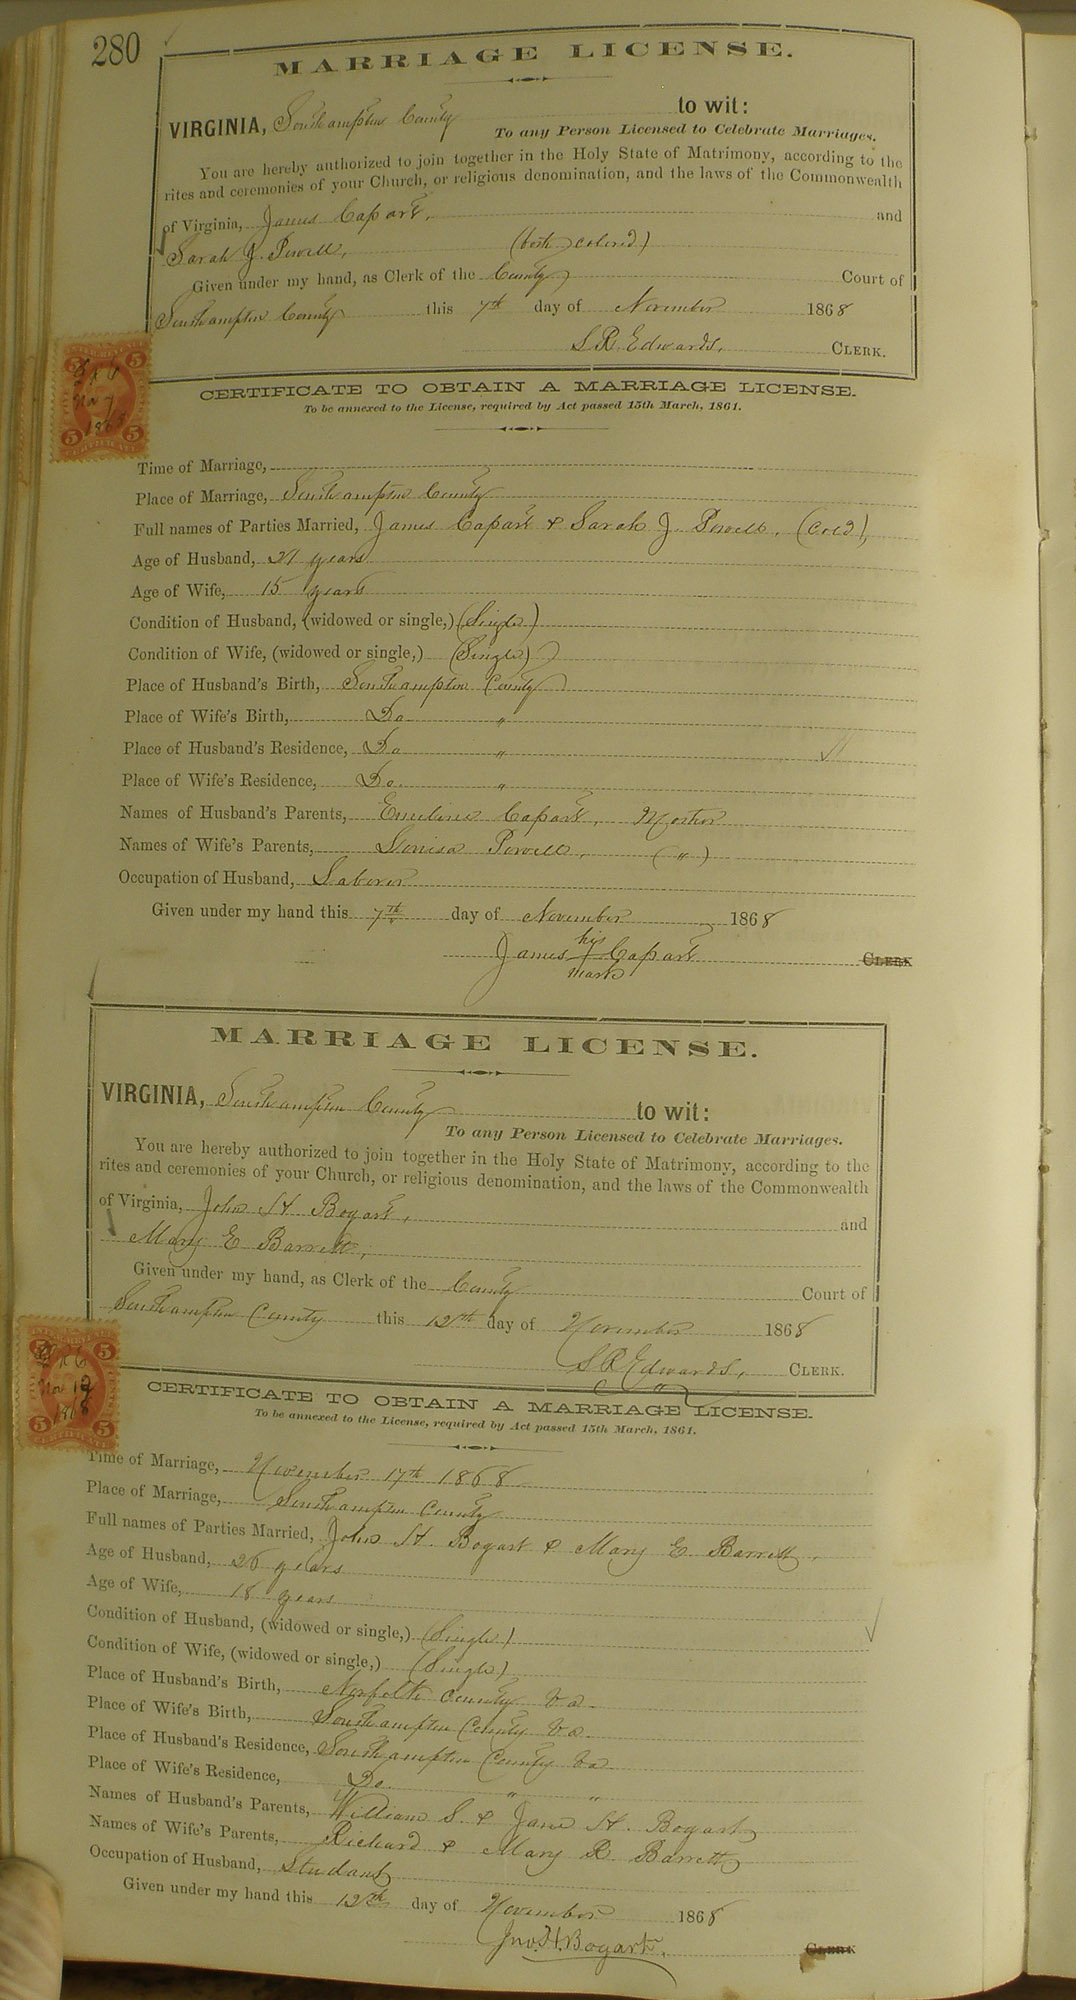 280
MARRIAGE LICENSE.
VIRGINIA, Southampton County to wit:
To any Person Licensed to Celebrate Marriages.
You are hereby authorized to join together in the Holy State of Matrimony, according to the
rites and ceremonies of your Church, or religious denomination, and the laws of the Commonwealth
of Virginia, James Capart, and
Sarah J. Powell, (both colored)
Given under my hand, as Clerk of the County Court of
Southampton County this 7th day of November 1868
S R Edwards, CLERK.
CERTIFICATE TO OBTAIN A MARRIAGE LICENSE.
To be annexed to the License, required by Act passed 15th March, 1861.
Time of Marriage,
Place of Marriage, Southampton County
Full names of Parties Married, James Capart & Sarah J Powell, (Cold)
Age of Husband, 21 years
Age of Wife, 15 years
Condition of Husband, (widowed or single,) (Single)
Condition of Wife, (widowed or single,) (Single)
Place of Husband's Birth, Southampton County
Place of Wife's Birth, Do "
Place of Husband's Residence, Do "
Place of Wife's Residence, Do. "
Names of Husband's Parents, Emeline Capart, Mother
Names of Wife's Parents, Louisa Powell, ( " )
Occupation of Husband, Laborer
Given under my hand this 7th day of November 1868
his
James Capart CLERK
mark
MARRIAGE LICENSE.
VIRGINIA, Southampton County to wit:
To any Person Licensed to Celebrate Marriages.
You are hereby authorized to join together in the Holy State of Matrimony, according to the
rites and ceremonies of your Church, or religious denomination, and the laws of the Commonwealth
of Virginia, John H Bogart, and
Mary E Barrett,
Given under my hand, as Clerk of the County Court of
Southampton County this 12th day of November 1868
S R Edwards, CLERK.
5 5
Nov 12
1868
5 5
CERTIFICATE
CERTIFICATE TO OBTAIN A MARRIAGE LICENSE.
To be annexed to the License, required by Act passed 15th March, 1861.
Time of Marriage, November 17th 1868
Place of Marriage, Southampton County
Full names of Parties Married, John H. Bogart & Mary E. Barrett.
Age of Husband, 26 years
Age of Wife, 18 years
Condition of Husband, (widowed or single,) (Single)
Condition of Wife, (widowed or single,) (Single)
Place of Husband's Birth, Norfolk County Va.
Place of Wife's Birth, Southampton County Va.
Place of Husband's Residence, Southampton County Va
Place of Wife's Residence, Do. " "
Names of Husband's Parents, William S. & Jane H. Bogart
Names of Wife's Parents, Richard & Mary R. Barrett
Occupation of Husband, Student
Given under my hand this 12th day of November 1868
Jno. H. Bogart. CLERK